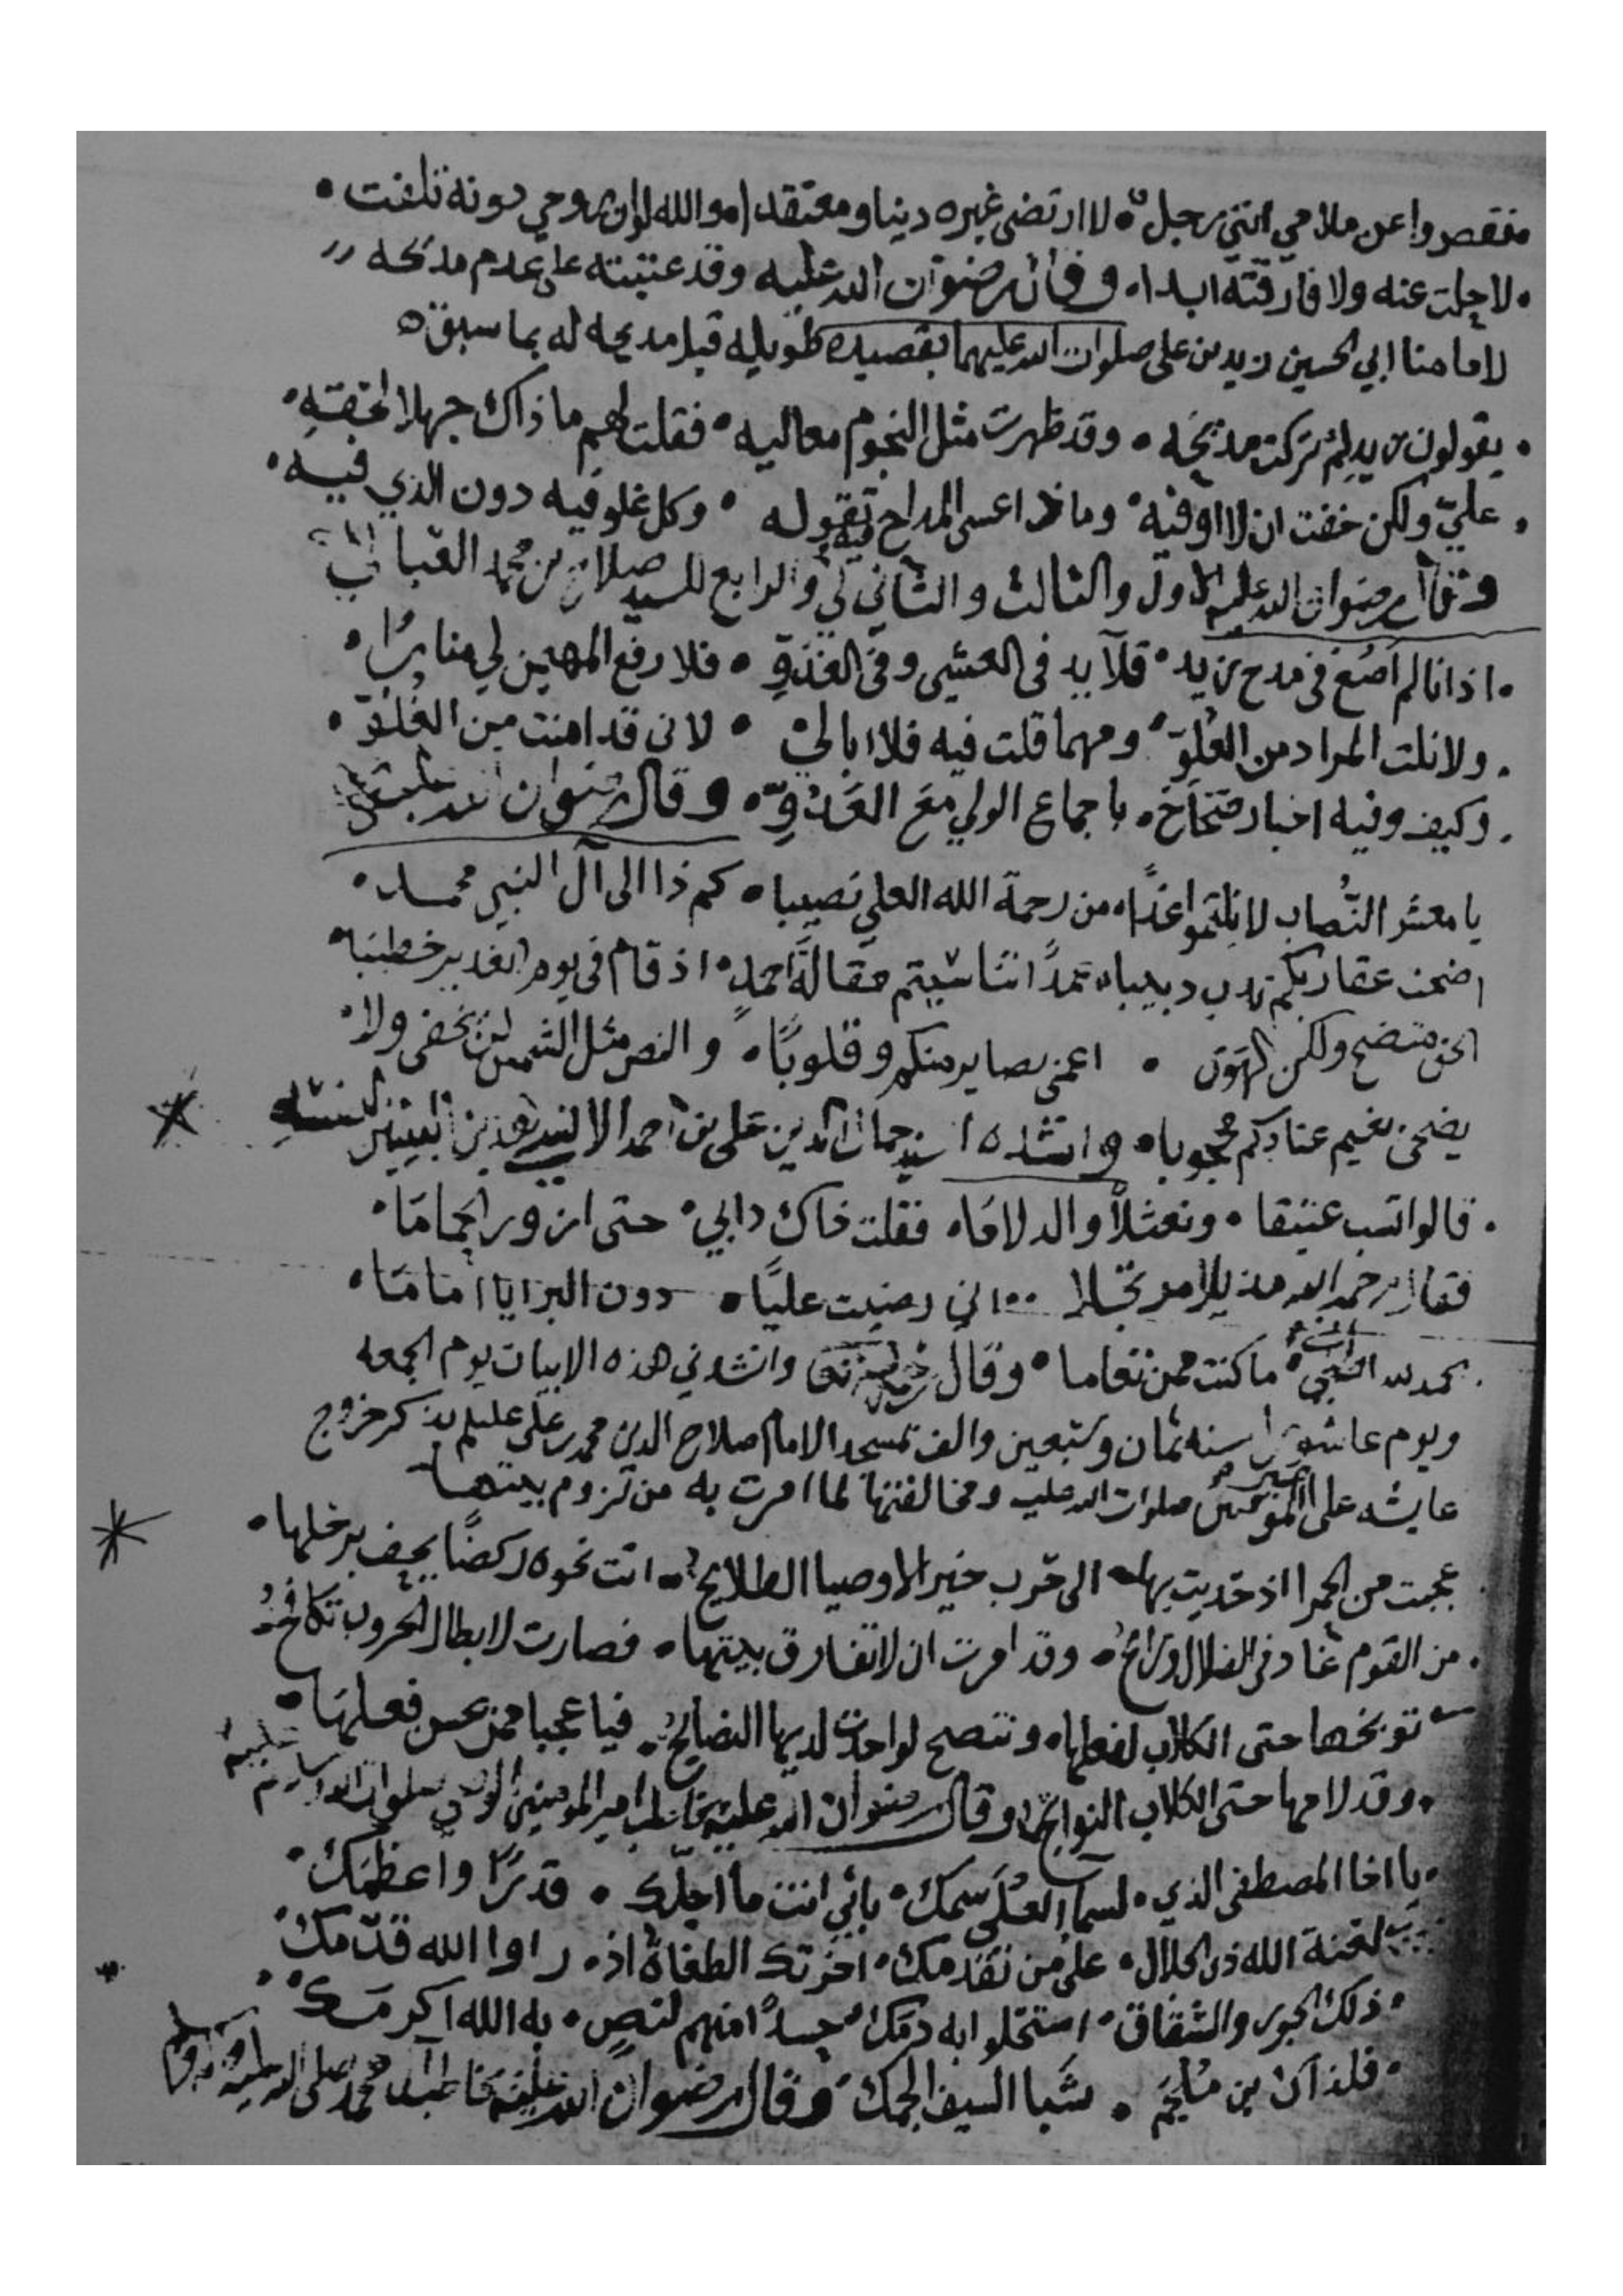 فقصروا عن ملامي انني رجل • لا ارتضي غيره دينا ومعتقدا • والله لو ان روحي دونه تلفت •
• لا حلت عنه ولا فارقته ابدا • وقال رضوان الله عليه وقد عتبته على عدم مدحه
لامامنا ابي الحسين زيد بن علي صلوات الله عليهما بقصيده طويله قبل مديحه له بما سبق
• يقولون زيد لم تركت مديحه • وقد ظهرت مثل النجوم معاليه • فقلت لهم ما ذاك جهلا لحقه •
• علي ولكن خفت ان لا اوفيه • وماذا عسى المداح فيه تقوله • وكل غلو فيه دون الذي فيه •
وقال رضوان الله عليه الاول والثالث والثاني لي والرابع للسيد صلاح بن محمد العباني
• اذا انا لم اصغ في مدح زيد • قلآيد في العشي وفي الغدو • فلا رفع المهيمن لي منارا •
• ولا نلت المراد من العلو • ومهما قلت فيه فلا ابالي • لاني قد امنت من الغلو •
• وكيف وفيه اخبار صحاح • باجماع الولي مع العدو • وقال رضوان الله عليه
يا معشر النصاب لا نلتموا غدا • من رحمة الله العلي نصيبا • كم ذا الى آل النبي محمد •
اضحت عقاربكم تدب دبيبا • عمدا تناسيتم مقالة احمد • اذ قام في يوم الغدير خطيبا •
الحق متضح ولكن الهوى • اعمى بصاير منكم وقلوبا • والنص مثل الشمس لن يخفى ولا •
يضحى بغيم عنادكم محجوبا • وانشده السيد جمال الدين علي بن احمد
• قالوا تسب عتيقا • ونعثلا والدلاما • فقلت ذاك دابي • حتى ازور الحماما •
فقال رحمه الله مذيلا اني رضيت عليا • دون البرايا اماما •
• الحمد لله ما كنت ممن تعاما • وقال وانشدني هذه الابيات يوم الجمعه
ويوم عاشورا سنه ثمان وسبعين والف بمسجد الامام صلاح الدين محمد بن علي عليلم يذكر خروج
عايشه على امير المومنين صلوات الله عليه ومخالفتها لما امرت به من لزوم بيتها
عجبت من الحمرا اذ حديت بها • الى حرب خير الاوصيا الطلايح • اتت نحوه ركضا يحف برحلها •
• من القوم غاد في الضلال ورائح • وقد امرت ان لا تفارق بيتها • فصارت لابطال الحروب تكافح
توبخها حتى الكلاب لفعلها • وتنصح لو اجدت لديها النصايح • فيا عجبا ممن يحسن فعلها •
• وقد لامها حتى الكلاب النوابح • وقال رضوان الله عليه مخاطبا امير المومنين الوصي صلوات الله وسلامه عليه
• يا اخا المصطفى الذي • لسما العلى سمك • بابي انت ما اجلك • قدرا واعظمك •
لعنة الله ذي الجلال • على من تقدمك • اخرتك الطغاة اذ • راوا الله قدمك
• ذلك الجور والشقاق • استحلوا به دمك • حسدا منهم لنص • به الله اكرمك •
• فلذاك بن ملجم • بشبا السيف الجمك • وقال رضوان الله عليه مخاطبا آل محمد صلى الله عليه